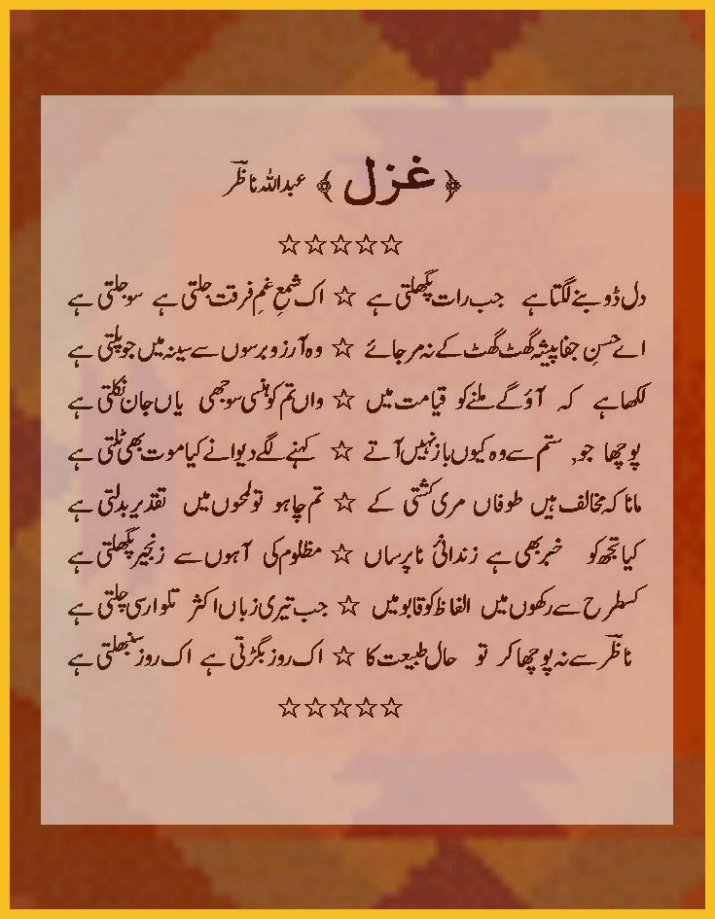 ﴿ غزل ﴾ عبداللہ ناظرؔ
☆☆☆☆☆
دل ڈوبنے لگتا ہے جب رات پگھلتی ہے ☆ اک شمعِ غمِ فرقت جلتی ہے سو جلتی ہے
اے حسنِ جفا پیشہ گھٹ گھٹ کے نہ مر جائے ☆ وہ آرزو برسوں سے سینہ میں جو پلتی ہے
لکھا ہے کہ آؤ گے ملنے کو قیامت میں ☆ واں تم کو ہنسی سوجھی یاں جان نکلتی ہے
پوچھا جو, ستم سے وہ کیوں باز نہیں آتے ☆ کہنے لگے دیوانے کیا موت بھی ٹلتی ہے
مانا کہ مخالف ہیں طوفاں مری کشتی کے ☆ تم چاہو تو لمحوں میں تقدیر بدلتی ہے
کیا تجھ کو خبر بھی ہے زندانیٔ ناپرساں ☆ مظلوم کی آہوں سے زنجیر پگھلتی ہے
کسطرح سے رکھوں میں الفاظ کو قابو میں ☆ جب تیری زباں اکثر تلوار سی چلتی ہے
ناظرؔ سے نہ پوچھا کر تو حال طبیعت کا ☆ اک روز بگڑتی ہے اک روز سنبھلتی ہے
☆☆☆☆☆